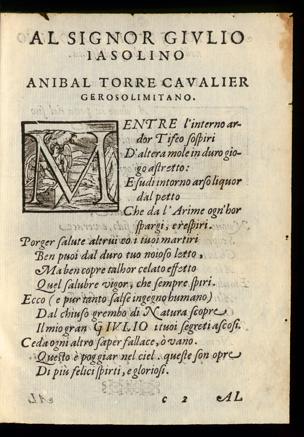 AL SIGNOR GIVLIO
IASOLINO
ANIBAL TORRE CAVALIER
GEROSOLIMITANO.
MENTRE l'interno ar-
dor Tifeo sospiri
D'altera mole in duro gio-
go astretto:
E sudi intorno arso liquor
dal petto
Che da l'Arime ogn'hor
spargi, e respiri.
Porger salute altrui cõ i tuoi martiri
Ben puoi dal duro tuo noioso letto,
Ma ben copre talhor celato effetto
Quel salubre vigor, che sempre spiri.
Ecco (e pur tanto salse ingegno humano)
Dal chiuso grembo di Natura scopre
Il mio gran GIVLIO i tuoi segreti ascosi.
Ceda ogni altro saper fallace, ò vano.
Questo è poggiar nel ciel. queste son opre
Di più felici spirti, e gloriosi.
c 2 AL